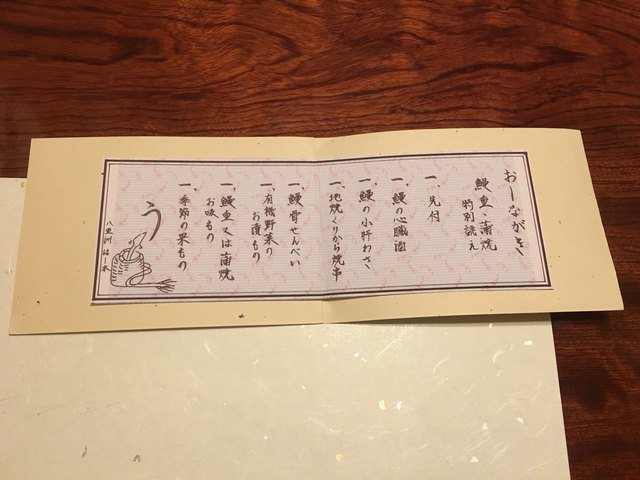 おしながき
鰻重、蒲焼
特別誂え
一、先付
一、鰻の心臓酒
一、鰻の小肝わさ
一、地焼くりから焼串
一、鰻骨せんべい
一、有機野菜の
お漬もの
一、鰻重又は蒲焼
お吸もの
一、季節の果もの
う
八重洲 はし本